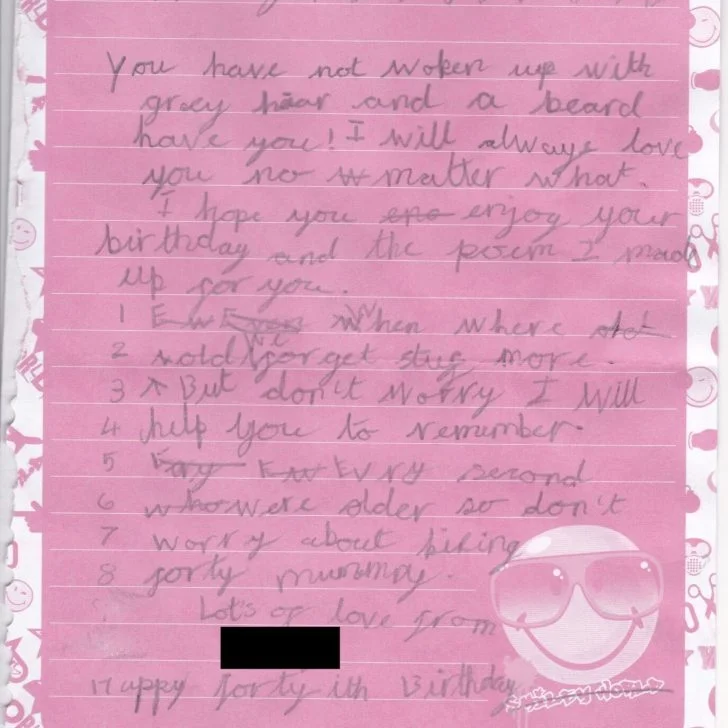 You have not woken up with
grey hair and a beard
have you! I will always love
you no matter what.
I hope you enjoy your
birthday and the poem I made
up for you.
1 When where
2 wold we forget stuf more.
3 But don't worry I will
4 help you to remember.
5 Evry second
6 were older so don't
7 worry about biking
8 forty mummpy.
Lot's of love from
Happy forty ith Birthday
SMILEY WORLD